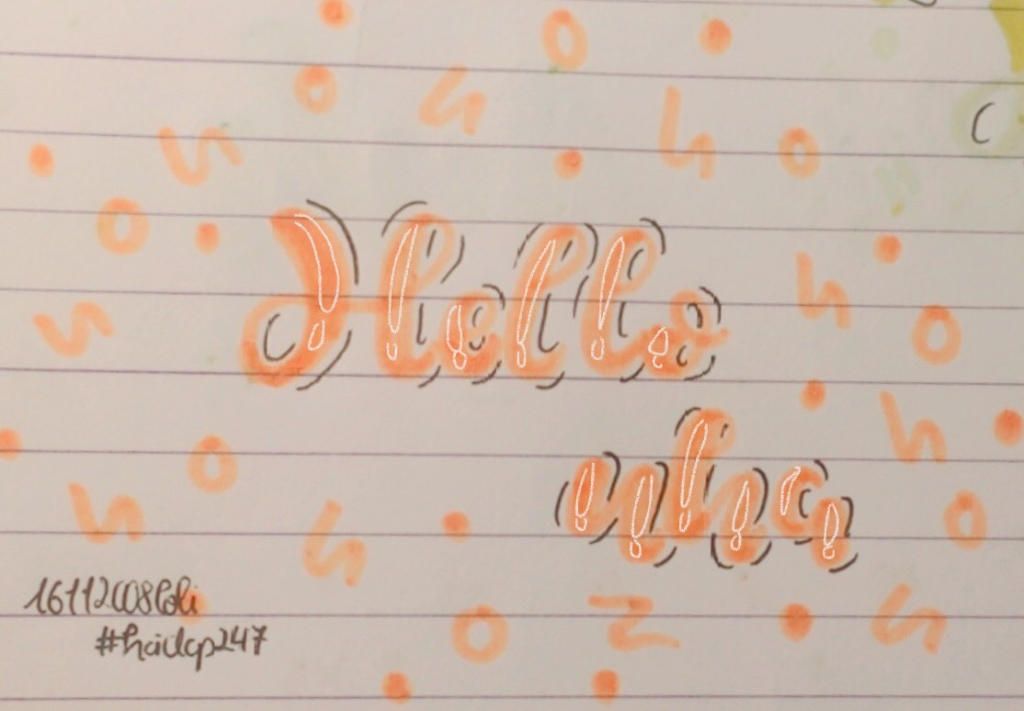 Hello
nha
16112008Poli
#haidcp247